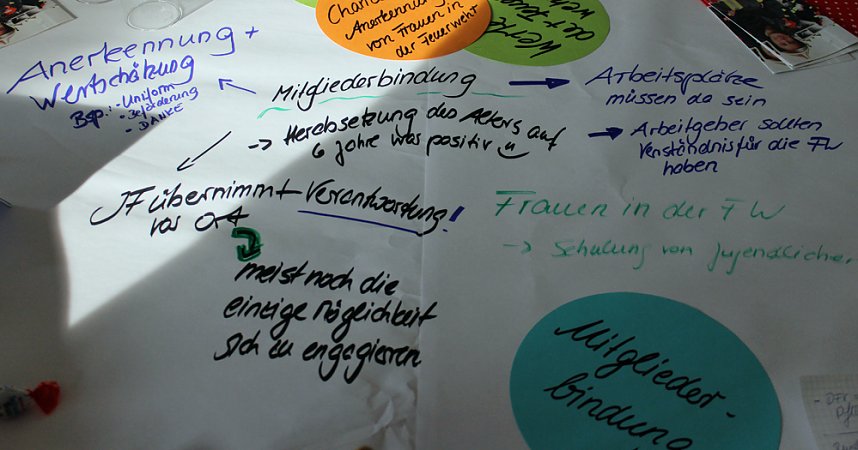 Anerkennung
von Frauen in
der Feuerwehr
Werte
der
Anerkennung +
Wertschätzung
Bsp.: - Uniform
- Beförderung
- DANKE
Mitgliederbindung
-> Herabsetzung des Alters auf
6 Jahre was positiv
Arbeitsplätze
müssen da sein
Arbeitgeber sollten
Verständnis für die FW
haben
JF übernimmt Verantwortung!
vor Ort
meist noch die
einzige Möglichkeit
sich zu engagieren
Frauen in der FW
-> Schulung von Jugendlichen
Mitglieder-
bindung